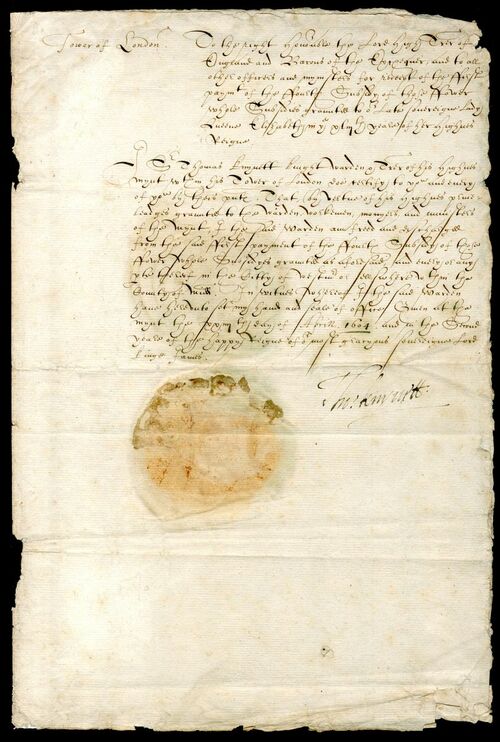 Tower of London.
To the right honorable the Lord High Trer of
England and Barons of the Exchequer, and to all
other officers and mynisters for receit of the first
paymt of the fourth Subsidy of those fower
whole Subsidies graunted to or late sovereigne Lady
Queene Elizabeth in ye xliijth yeare of her highnes
Reigne
I Sr Thomas Knyvett knight warden of his highnes
mynt within his Tower of London doe certify to yow and every
of yow by theis pntes That (by vertue of his highnes privi
ledges graunted to the warden workemen monyers and ministers
of the mynt) I the said warden am freed and discharged
from the said first payment of the fourth Subsidy of those
fower whole Subsidyes graunted as aforesaid, and every or any
pte thereof in the Citty of or elswhere within the
County of Midd. In witnes whereof I the said warden
have hereunto set my hand and seale of office Given at the
mynt the day of Aprill 1604 and in the Second
yeare of the happy Reigne of or most gracyous sovereigne Lord
Kinge James.
Tho: Knyvett: